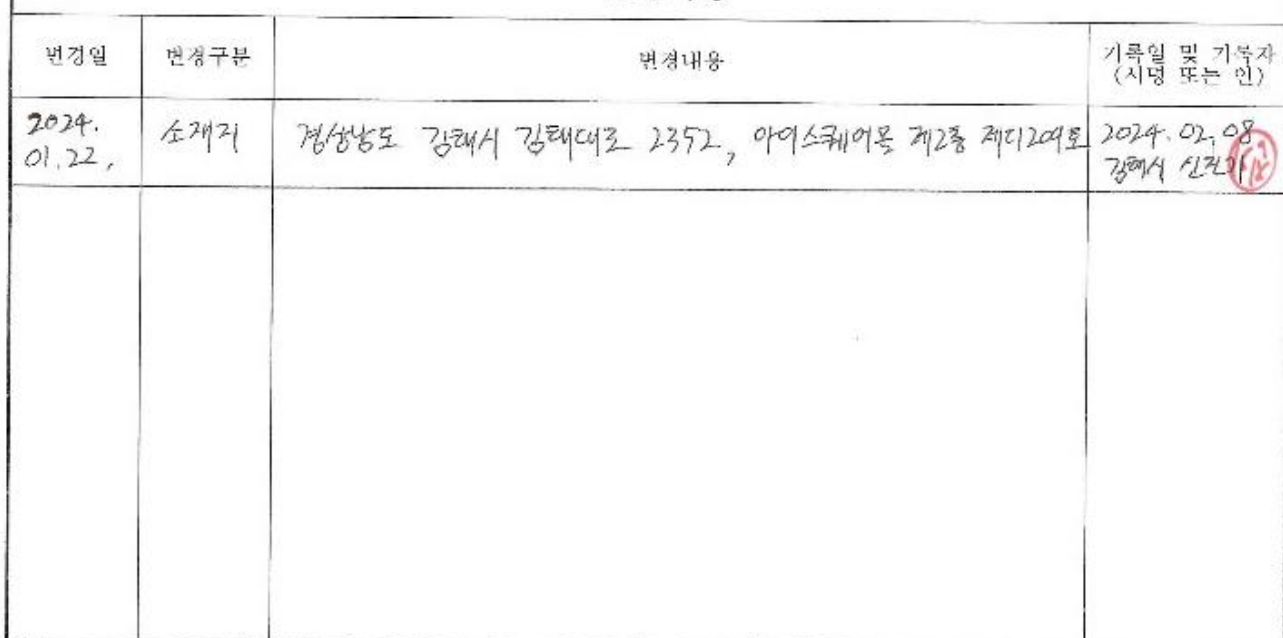 변경일
변경구분
변경내용
기록일 및 기록자
(서명 또는 인)
2024.
01.22.
소재지
경상남도 김해시 김해대로 2352, 아이스퀘어몰 제2층 제디209호
2024.02.08
김해시